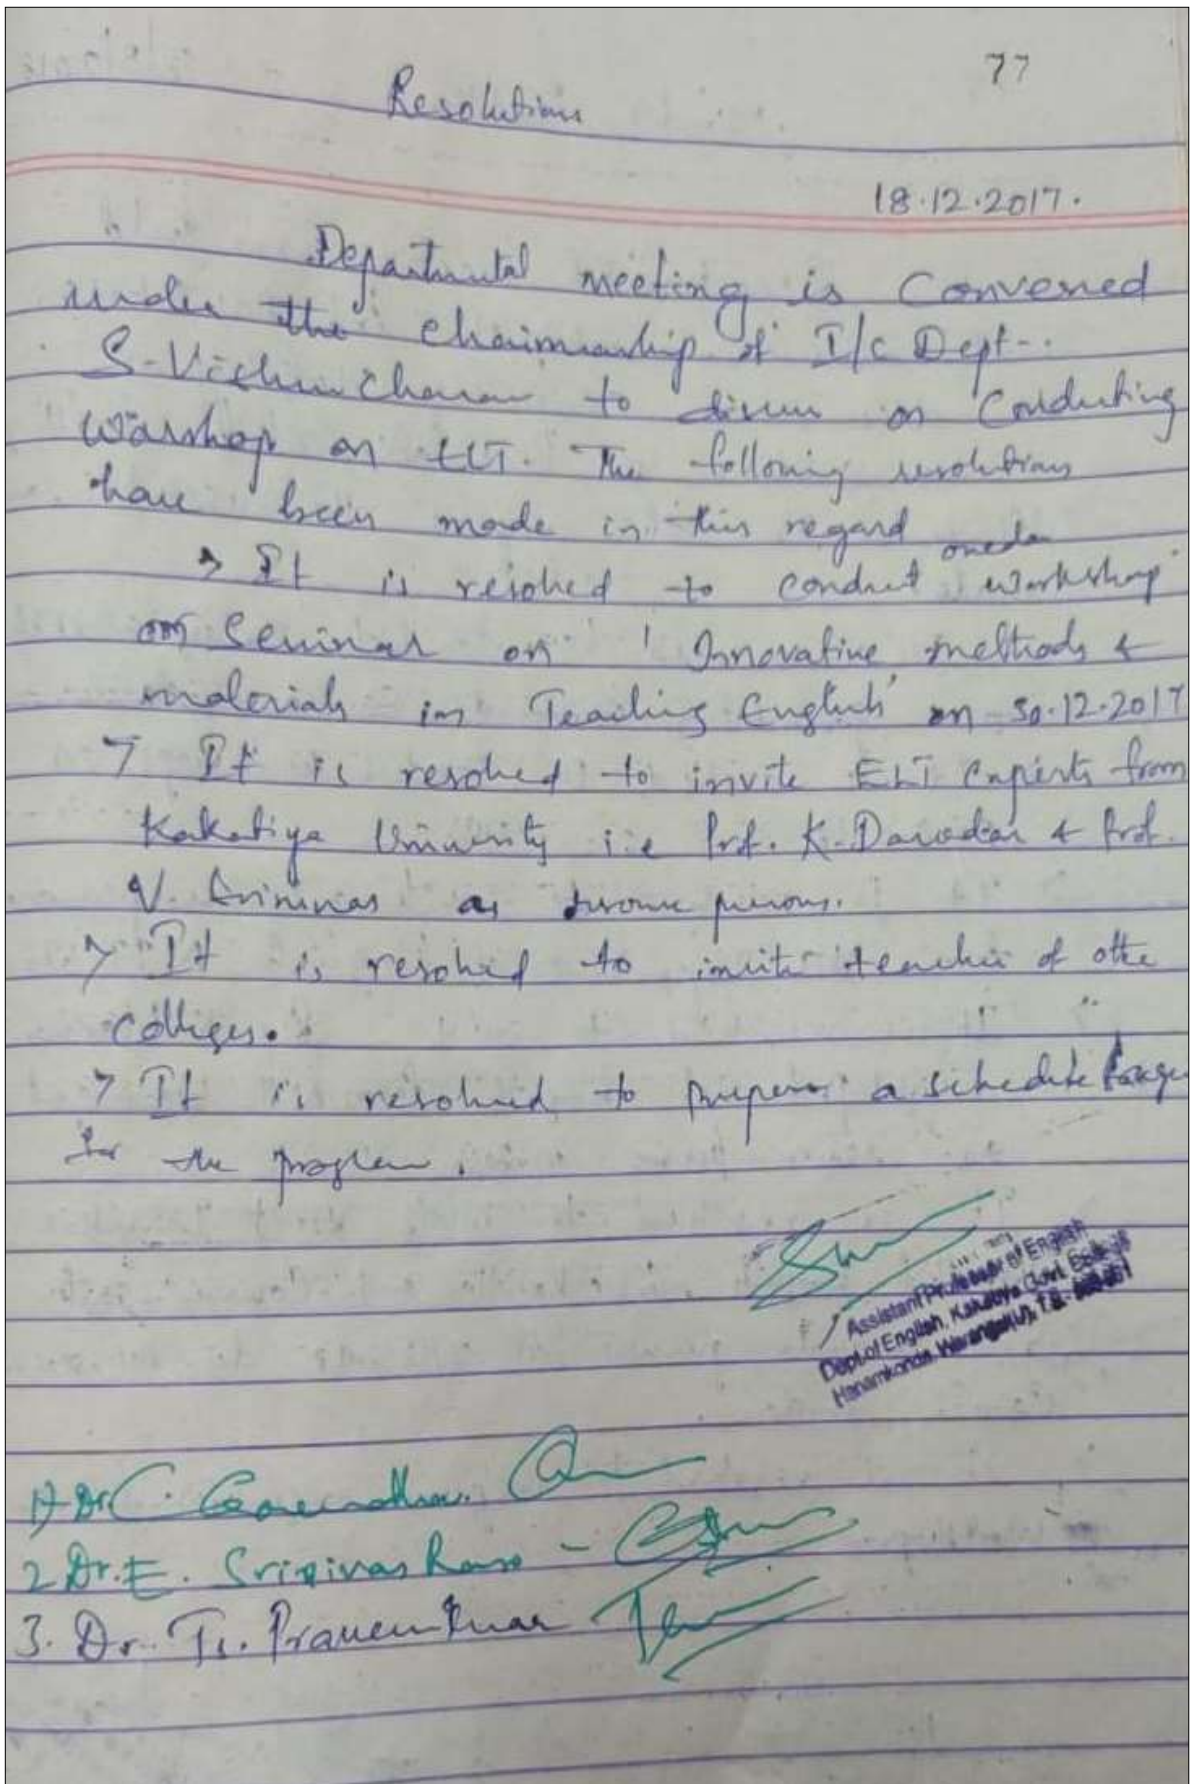 77
Resolutions
18.12.2017.
Departmental meeting is Convened
under the chairmanship of I/c Dept-..
S-Vishnu Charan to discuss on Conducting
Warshop on ELT. The following resolutions
have been made in this regard
> It is resolved to conduct oneday workshop
on Seminar on 'Innovative methods &
materials in Teaching English' on 30.12.2017
> It is resolved to invite ELT experts from
Kakatiya University i.e Prof. K. Damodar & Prof.
V. Srinivas as resource persons.
> It is resolved to invite teacher of other
colleges.
> It is resolved to prepare a schedule
for the program.
Assistant Professor of English
Dept.of English, Kakatiya Govt.
Hanamkonda, Warangal(U), T.S.-
1) Dr C.
2 Dr. E. Srinivas Rao -
3. Dr. Ts. Praveen Kumar